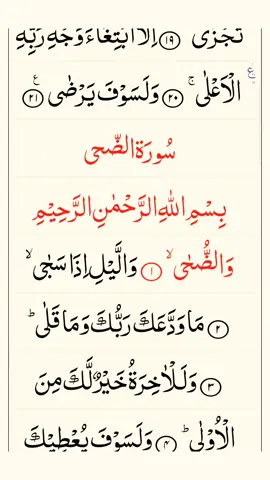 تُجْزٰۤى ۝١٩ اِلَّا ابْتِغَآءَ وَجْهِ رَبِّهِ
الْاَعْلٰى ۚ ۝٢٠ وَلَسَوْفَ يَرْضٰى ۝٢١ ع
سُورَةُ الضُّحٰى
بِسْمِ اللّٰهِ الرَّحْمٰنِ الرَّحِيْمِ
وَالضُّحٰى ۙ ۝١ وَالَّيْلِ اِذَا سَجٰى ۙ
۝٢ مَا وَدَّعَكَ رَبُّكَ وَمَا قَلٰى ؕ
۝٣ وَلَلْاٰخِرَةُ خَيْرٌ لَّكَ مِنَ
الْاُوْلٰى ؕ ۝۴ وَلَسَوْفَ يُعْطِيْكَ